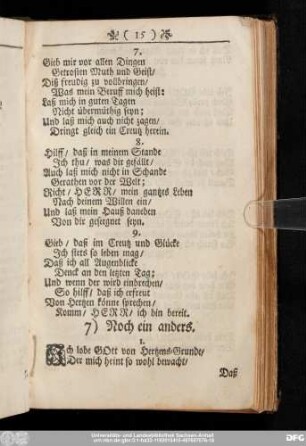 ( 15 )
7.
Gieb mir vor allen Dingen
Getrosten Muth und Geist/
Diß freudig zu vollbringen/
Was mein Beruff mich heist:
Laß mich in guten Tagen
Nicht übermüthig seyn;
Und laß mich auch nicht zagen/
Dringt gleich ein Creutz herein.
8.
Hilff/ daß in meinem Stande
Ich thu/ was dir gefält/
Auch laß mich nicht in Schande
Gerathen vor der Welt;
Richt/ HERR/ mein gantzes Leben
Nach deinem Willen ein/
Und laß mein Hauß daneben
Von dir gesegnet seyn.
9.
Gieb/ daß im Creutz und Glücke
Jch stets so leben mag/
Daß ich all Augenblicke
Denck an den letzten Tag;
Und wenn der wird einbrechen/
So hilff/ daß ich erfreut
Von Hertzen könne sprechen/
Komm/ HERR/ ich bin bereit.
7) Noch ein anders.
1.
Jch lobe GOtt von Hertzens-Grunde/
Der mich heint so wohl bewacht/
Daß
Universitäts- und Landesbibliothek Sachsen-Anhalt
DFG